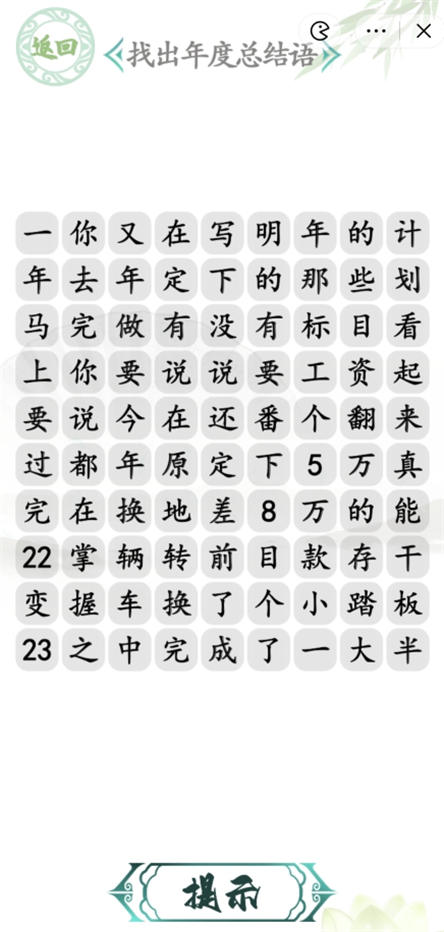 返回
找出年度总结语
一你又在写明年的计
年去年定下的那些划
马完做有没有标目看
上你要说说要工资起
要说今在还番个翻来
过都年原定下5万真
完在换地差8万的能
22掌辆转前目款存干
变握车换了个小踏板
23之中完成了一大半
提示